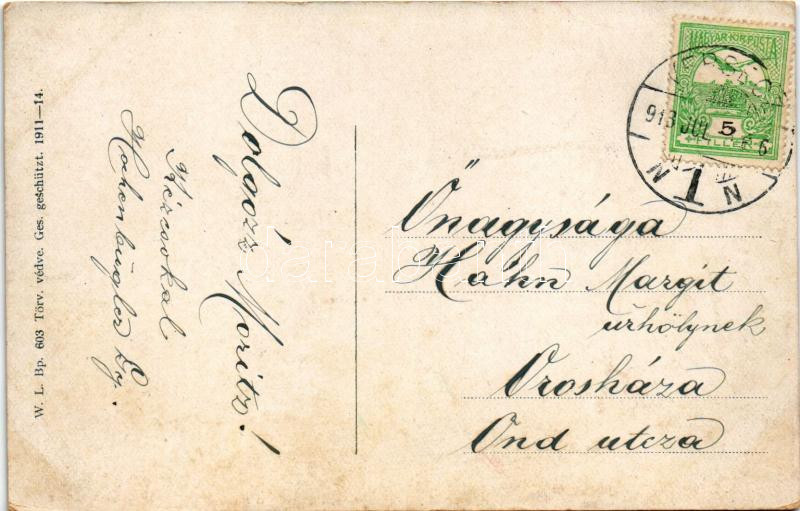 W. L. Bp. 603 Törv. védve. Ges. geschützt. 1911—14.
Dolgozz Moritz!
Kézcsokal
MAGYAR KIR. POSTA
5
FILLÉR
913 JUL
1
Őnagysága
Hahn Margit
úrhölynek
Orosháza
Ond utcza